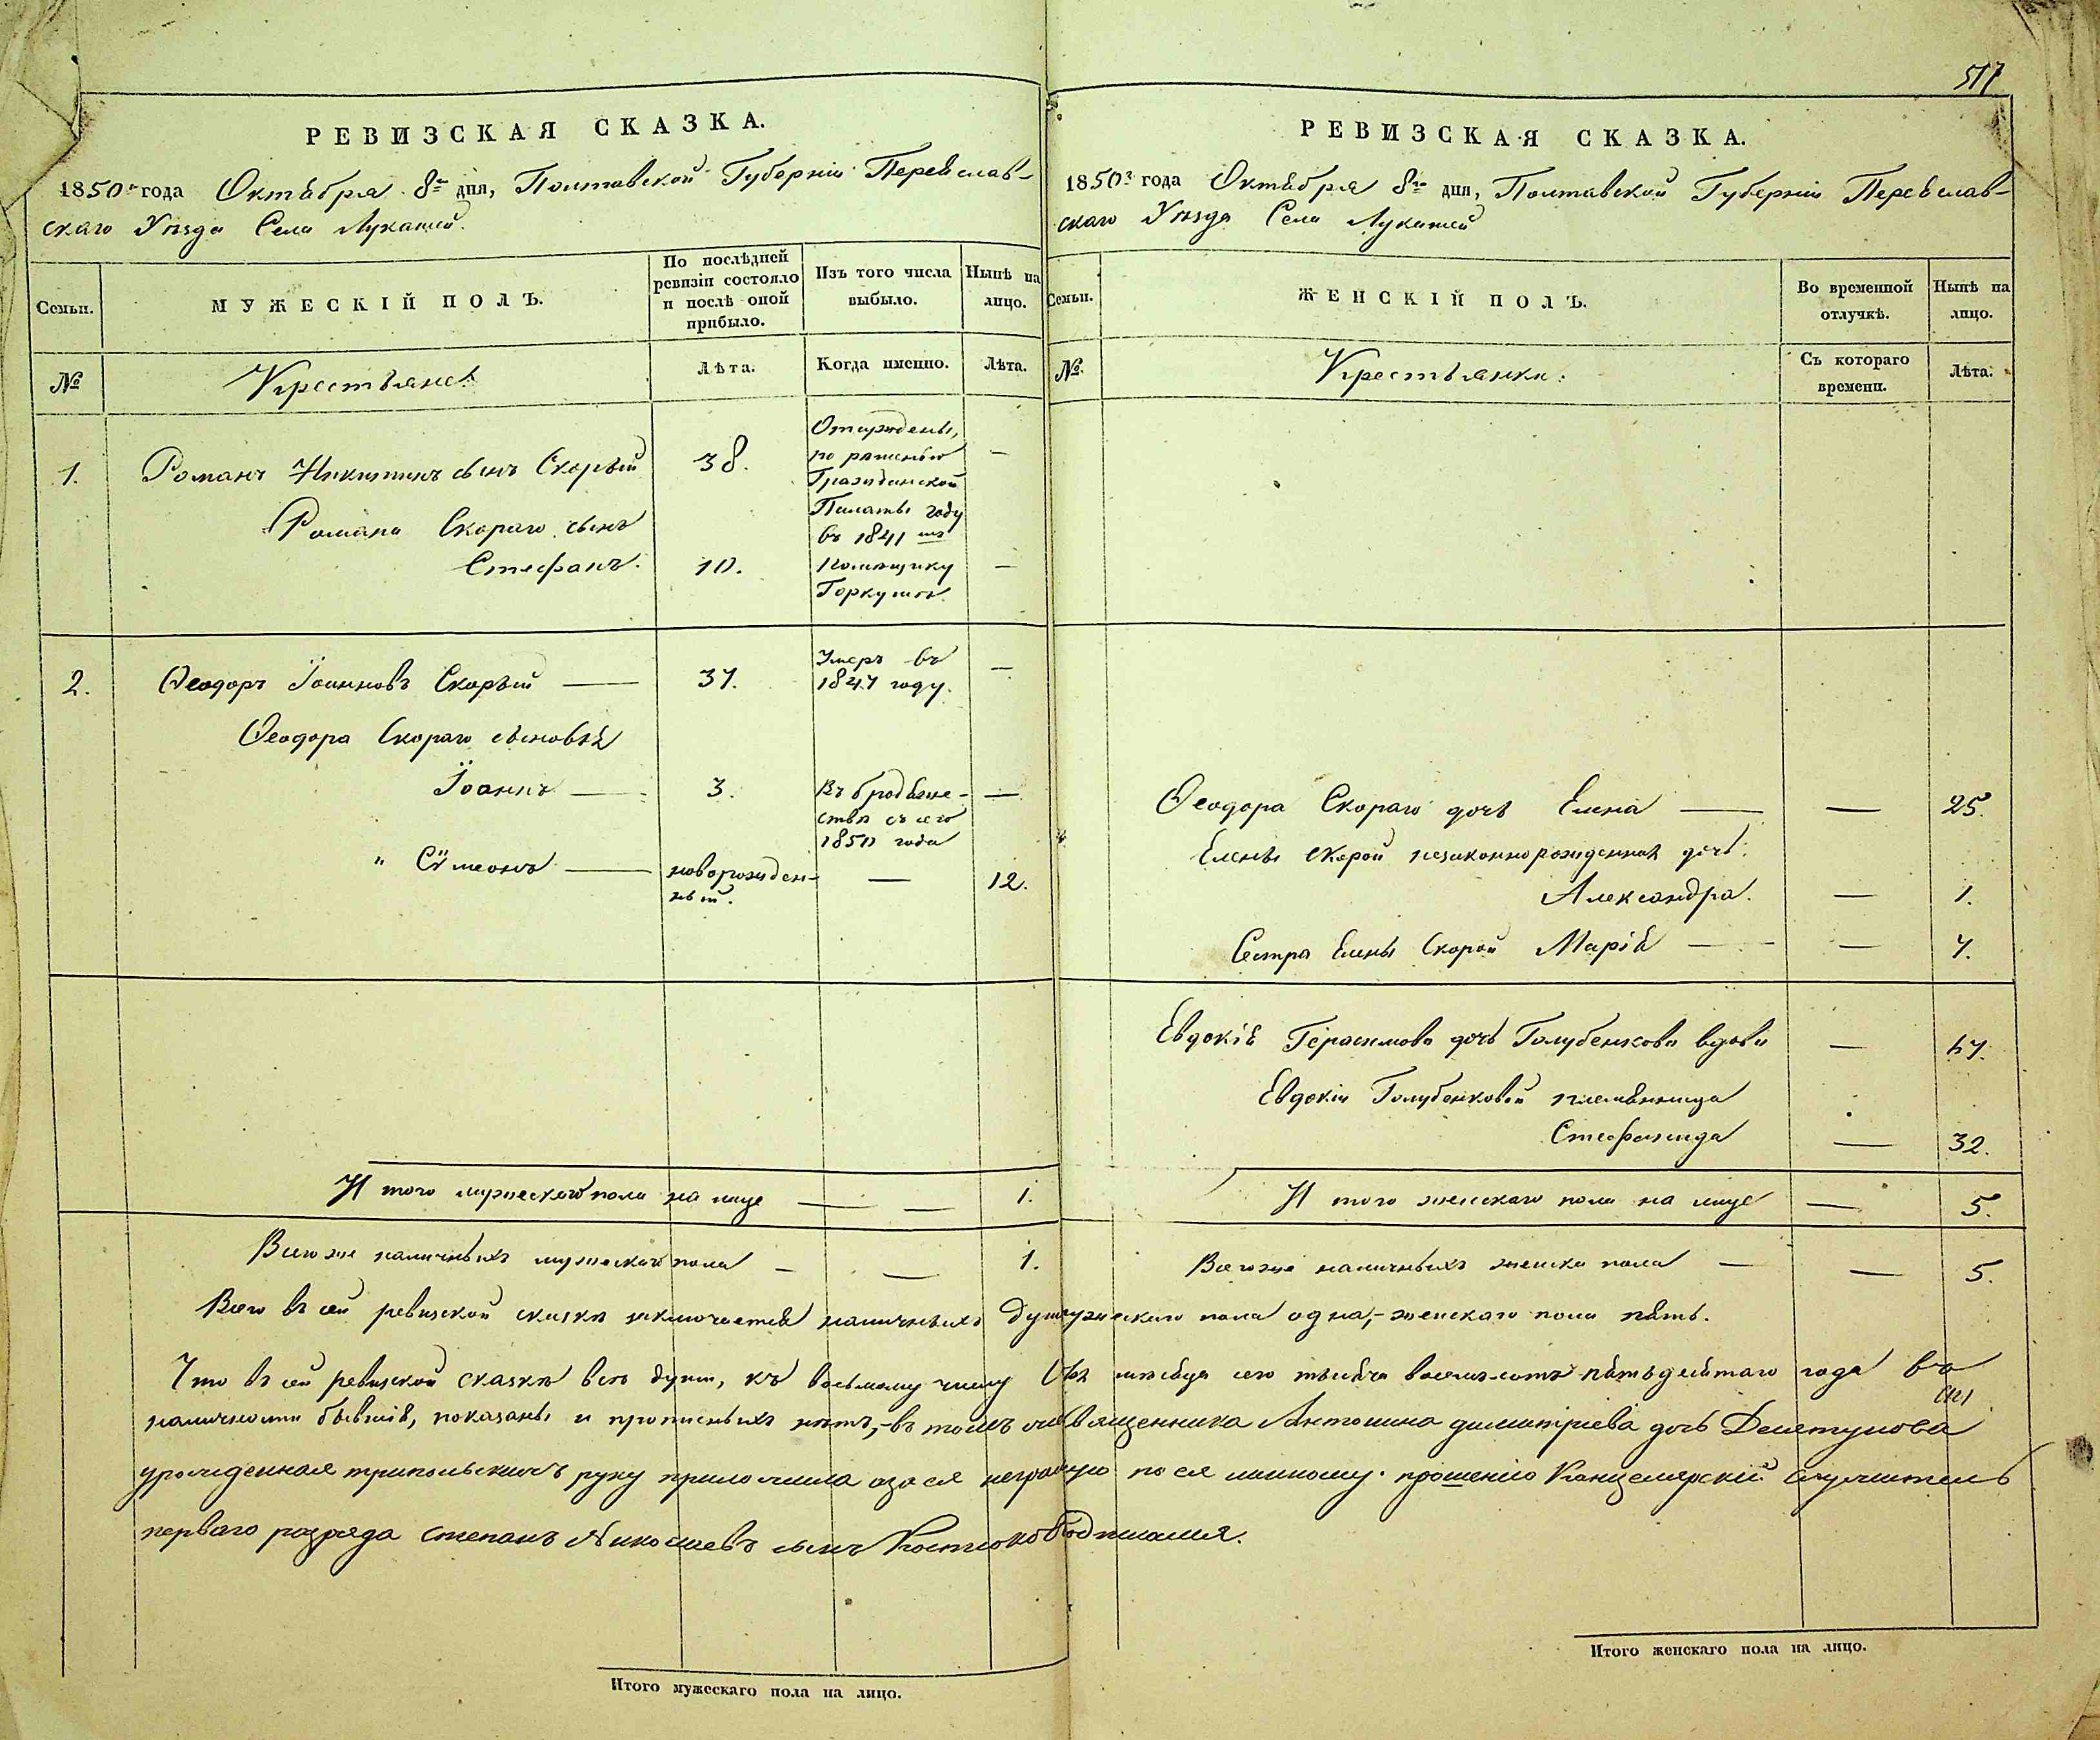 517
РЕВИЗСКАЯ СКАЗКА.
1850го года Октября 8го дня, Полтавской Губерніи Переяслав-
скаго Уѣзда Села Лукашей.
Семьи.
МУЖЕСКІЙ ПОЛЪ.
По послѣдней ревизіи состояло и послѣ оной прибыло.
Изъ того числа выбыло.
Нынѣ на лицо.
№
Крестьяне:
Лѣта.
Когда именно.
Лѣта.
1. Романъ Никитинъ сынъ Скорый 38. —
Романа Скораго сынъ
Стефанъ. 10. —
Отсуждены,
по рѣшенью
Гражданской
Палаты году
въ 1841 мъ
помѣщику
Горкушѣ.
2. Ѳеодоръ Іоанновъ Скорый — 37. Умеръ въ 1847 году. —
Ѳеодора Скораго сыновья
Іоаннъ — 3. Въ бродяже-
ствѣ съ его
1850 года —
" Сѵмеонъ — новорожден-
ный. — 12.
И того мужескаго пола на лице — — 1.
Всего же наличныхъ мужескаго пола — — 1.
РЕВИЗСКАЯ СКАЗКА.
1850го года Октября 8го дня, Полтавской Губерніи Переяслав-
скаго Уѣзда Села Лукашей
Семьи.
ЖЕНСКІЙ ПОЛЪ.
Во временной отлучкѣ.
Нынѣ на лицо.
№.
Крестьянки:
Съ котораго времени.
Лѣта.
Ѳеодора Скораго дочь Елена — — 25.
Елены Скорой незаконнорожденная дочь.
Александра. — 1.
Сестра Елены Скорой Марія — — 7.
Евдокія Герасимова дочь Голубенкова вдова —
Евдокіи Голубенковой племянница
Стефанида — 32.
И того женскаго пола на лице — 5.
Всего же наличныхъ женска пола — — 5.
Всего въ сей ревизской сказкѣ заключается наличныхъ душъ мужескаго пола одна,- женскаго пола пять.
Что въ сей ревизской сказкѣ всѣ души, къ восьмому числу мѣсяца сего тысяча восемь-сотъ пятьдесятаго года въ
наличности бывшія, показаны и прописныхъ нѣтъ,- въ томъ священника Антонина Димитріева дочь
урожденная руку приложила а за ея неграмотную по ея личному прошенію Канцелярскій служитель
перваго разряда Степанъ Николаевъ сынъ подписался.
Итого мужескаго пола на лицо.
Итого женскаго пола на лицо.